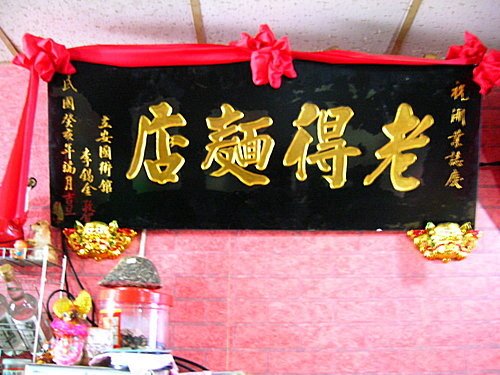 祝開業誌慶
老得麵店
立安國術館
李錫金敬賀
民國癸亥年端月吉旦